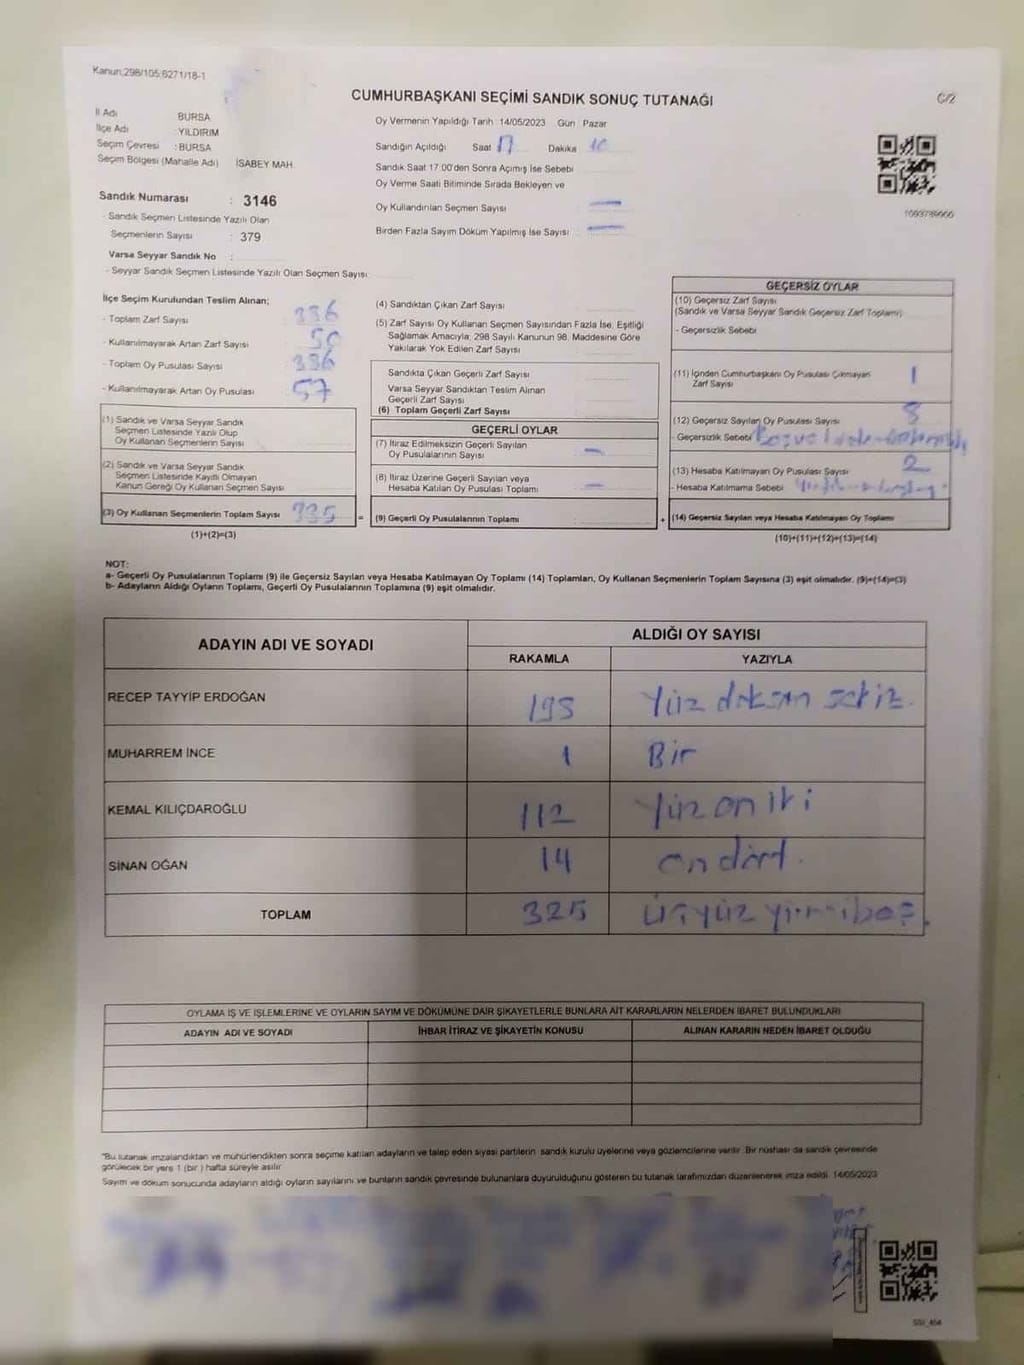 Kanun;298/105;6271/18-1
CUMHURBAŞKANI SEÇİMİ SANDIK SONUÇ TUTANAĞI
C/2
İl Adı BURSA
İlçe Adı : YILDIRIM
Seçim Çevresi : BURSA
Seçim Bölgesi (Mahalle Adı) İSABEY MAH.
Oy Vermenin Yapıldığı Tarih : 14/05/2023 Gün : Pazar
Sandığın Açıldığı Saat 17 Dakika 10
Sandık Saat 17:00'den Sonra Açımış İse Sebebi
Oy Verme Saati Bitiminde Sırada Bekleyen ve
Oy Kullandırılan Seçmen Sayısı —
Birden Fazla Sayım Döküm Yapılmış İse Sayısı : —
Sandık Numarası : 3146
- Sandık Seçmen Listesinde Yazılı Olan
Seçmenlerin Sayısı : 379
Varsa Seyyar Sandık No :
- Seyyar Sandık Seçmen Listesinde Yazılı Olan Seçmen Sayısı:
İlçe Seçim Kurulundan Teslim Alınan;
- Toplam Zarf Sayısı
- Kullanılmayarak Artan Zarf Sayısı
- Toplam Oy Pusulası Sayısı
- Kullanılmayarak Artan Oy Pusulası 57
(1) Sandık ve Varsa Seyyar Sandık
Seçmen Listesinde Yazılı Olup
Oy Kullanan Seçmenlerin Sayısı
(2) Sandık ve Varsa Seyyar Sandık
Seçmen Listesinde Kayıtlı Olmayan
Kanun Gereği Oy Kullanan Seçmen Sayısı
(3) Oy Kullanan Seçmenlerin Toplam Sayısı 335
(1)+(2)=(3)
(4) Sandıktan Çıkan Zarf Sayısı
(5) Zarf Sayısı Oy Kullanan Seçmen Sayısından Fazla İse, Eşitliği
Sağlamak Amacıyla; 298 Sayılı Kanunun 98. Maddesine Göre
Yakılarak Yok Edilen Zarf Sayısı
Sandıkta Çıkan Geçerli Zarf Sayısı
Varsa Seyyar Sandıktan Teslim Alınan
Geçerli Zarf Sayısı
(6) Toplam Geçerli Zarf Sayısı
GEÇERLİ OYLAR
(7) İtiraz Edilmeksizin Geçerli Sayılan
Oy Pusulalarının Sayısı —
(8) İtiraz Üzerine Geçerli Sayılan veya
Hesaba Katılan Oy Pusulası Toplamı —
= (9) Geçerli Oy Pusulalarının Toplamı +
GEÇERSİZ OYLAR
(10) Geçersiz Zarf Sayısı
(Sandık ve Varsa Seyyar Sandık Geçersiz Zarf Toplamı)
- Geçersizlik Sebebi
(11) İçinden Cumhurbaşkanı Oy Pusulası Çıkmayan
Zarf Sayısı 1
(12) Geçersiz Sayılan Oy Pusulası Sayısı 8
- Geçersizlik Sebebi
(13) Hesaba Katılmayan Oy Pusulası Sayısı 2
- Hesaba Katılmama Sebebi
(14) Geçersiz Sayılan veya Hesaba Katılmayan Oy Toplamı
(10)+(11)+(12)+(13)=(14)
NOT:
a- Geçerli Oy Pusulalarının Toplamı (9) ile Geçersiz Sayılan veya Hesaba Katılmayan Oy Toplamı (14) Toplamları, Oy Kullanan Seçmenlerin Toplam Sayısına (3) eşit olmalıdır. (9)+(14)=(3)
b- Adayların Aldığı Oyların Toplamı, Geçerli Oy Pusulalarının Toplamına (9) eşit olmalıdır.
ADAYIN ADI VE SOYADI ALDIĞI OY SAYISI
RAKAMLA YAZIYLA
RECEP TAYYİP ERDOĞAN 198 Yüz doksan sekiz.
MUHARREM İNCE 1 Bir
KEMAL KILIÇDAROĞLU 112 Yüz on iki
SİNAN OĞAN 14 on dört.
TOPLAM 325 Üçyüz yirmibeş.
OYLAMA İŞ VE İŞLEMLERİNE VE OYLARIN SAYIM VE DÖKÜMÜNE DAİR ŞİKAYETLERLE BUNLARA AİT KARARLARIN NELERDEN İBARET BULUNDUKLARI
ADAYIN ADI VE SOYADI İHBAR İTİRAZ VE ŞİKAYETİN KONUSU ALINAN KARARIN NEDEN İBARET OLDUĞU
"Bu tutanak imzalandıktan ve mühürlendikten sonra seçime katılan adayların ve talep eden siyasi partilerin sandık kurulu üyelerine veya gözlemcilerine verilir. Bir nüshası da sandık çevresinde
görülecek bir yere 1 (bir) hafta süreyle asılır
Sayım ve döküm sonucunda adayların aldığı oyların sayılarını ve bunların sandık çevresinde bulunanlara duyurulduğunu gösteren bu tutanak tarafımızdan düzenlenerek imza edildi. 14/05/2023